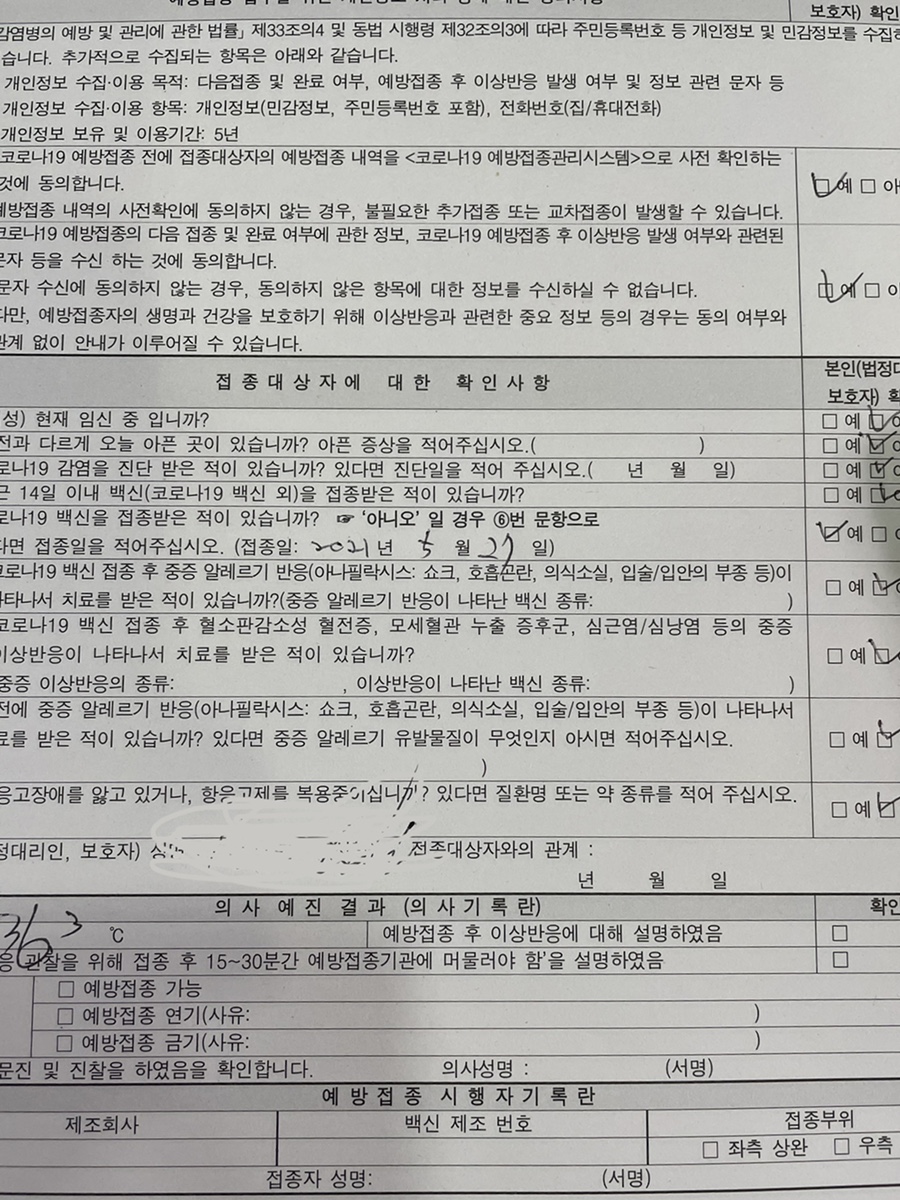 보호자) 확인
감염병의 예방 및 관리에 관한 법률」 제33조의4 및 동법 시행령 제32조의3에 따라 주민등록번호 등 개인정보 및 민감정보를 수집하
습니다. 추가적으로 수집되는 항목은 아래와 같습니다.
개인정보 수집·이용 목적: 다음접종 및 완료 여부, 예방접종 후 이상반응 발생 여부 및 정보 관련 문자 등
개인정보 수집·이용 항목: 개인정보(민감정보, 주민등록번호 포함), 전화번호(집/휴대전화)
개인정보 보유 및 이용기간: 5년
코로나19 예방접종 전에 접종대상자의 예방접종 내역을 <코로나19 예방접종관리시스템>으로 사전 확인하는
것에 동의합니다.
☑ 예 □ 아
예방접종 내역의 사전확인에 동의하지 않는 경우, 불필요한 추가접종 또는 교차접종이 발생할 수 있습니다.
코로나19 예방접종의 다음 접종 및 완료 여부에 관한 정보, 코로나19 예방접종 후 이상반응 발생 여부와 관련된
문자 등을 수신 하는 것에 동의합니다.
문자 수신에 동의하지 않는 경우, 동의하지 않은 항목에 대한 정보를 수신하실 수 없습니다.
☑ 예 □ 아
다만, 예방접종자의 생명과 건강을 보호하기 위해 이상반응과 관련한 중요 정보 등의 경우는 동의 여부와
관계 없이 안내가 이루어질 수 있습니다.
접종대상자에 대한 확인사항
본인(법정대
보호자) 확
성) 현재 임신 중 입니까? □ 예 ☑ 아
전과 다르게 오늘 아픈 곳이 있습니까? 아픈 증상을 적어주십시오.( ) □ 예 ☑ 아
로나19 감염을 진단 받은 적이 있습니까? 있다면 진단일을 적어 주십시오.( 년 월 일) □ 예 ☑ 아
근 14일 이내 백신(코로나19 백신 외)을 접종받은 적이 있습니까? □ 예 ☑ 아
로나19 백신을 접종받은 적이 있습니까? ☞ '아니오' 일 경우 ⑥번 문항으로
다면 접종일을 적어주십시오. (접종일: 2021 년 5 월 27 일) ☑ 예 □ 아
코로나19 백신 접종 후 중증 알레르기 반응(아나필락시스: 쇼크, 호흡곤란, 의식소실, 입술/입안의 부종 등)이
나타나서 치료를 받은 적이 있습니까?(중증 알레르기 반응이 나타난 백신 종류: ) □ 예 ☑ 아
코로나19 백신 접종 후 혈소판감소성 혈전증, 모세혈관 누출 증후군, 심근염/심낭염 등의 중증
이상반응이 나타나서 치료를 받은 적이 있습니까? □ 예 ☑
중증 이상반응의 종류: , 이상반응이 나타난 백신 종류: )
전에 중증 알레르기 반응(아나필락시스: 쇼크, 호흡곤란, 의식소실, 입술/입안의 부종 등)이 나타나서
료를 받은 적이 있습니까? 있다면 중증 알레르기 유발물질이 무엇인지 아시면 적어주십시오. □ 예 ☑
)
응고장애를 앓고 있거나, 항응고제를 복용중이십니까? 있다면 질환명 또는 약 종류를 적어 주십시오. □ 예 ☑
정대리인, 보호자) 접종대상자와의 관계 :
년 월 일
의사 예진 결과 (의사기록란) 확인
36 3 ℃ 예방접종 후 이상반응에 대해 설명하였음 □
응 관찰을 위해 접종 후 15~30분간 예방접종기관에 머물러야 함'을 설명하였음 □
□ 예방접종 가능
□ 예방접종 연기(사유: )
□ 예방접종 금기(사유: )
문진 및 진찰을 하였음을 확인합니다. 의사성명 : (서명)
예방접종 시행자기록란
제조회사 백신 제조 번호 접종부위
□ 좌측 상완 □ 우측
접종자 성명: (서명)